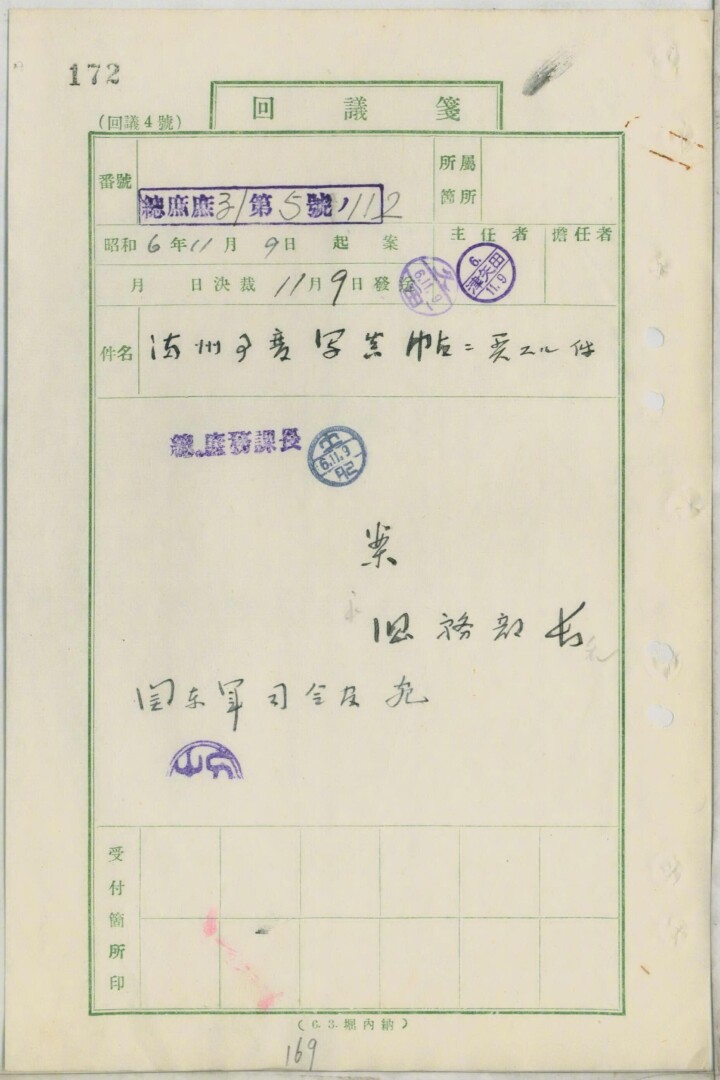 172
回議箋
(回議4號)
番號
總庶庶31第5號ノ112
所屬箇所
昭和6年11月9日起案
主任者
擔任者
月 日決裁 11月9日發送
6.11.9
津矢田
6.
11.9
件名
満州事变写真帖ニ関スル件
總、庶務課長
6.11.9
案
総務部長
関东軍司令官宛
受付箇所印
(6.3.堀內納)
169